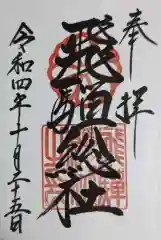 奉拝
飛騨総社
令和四年十月二十五日